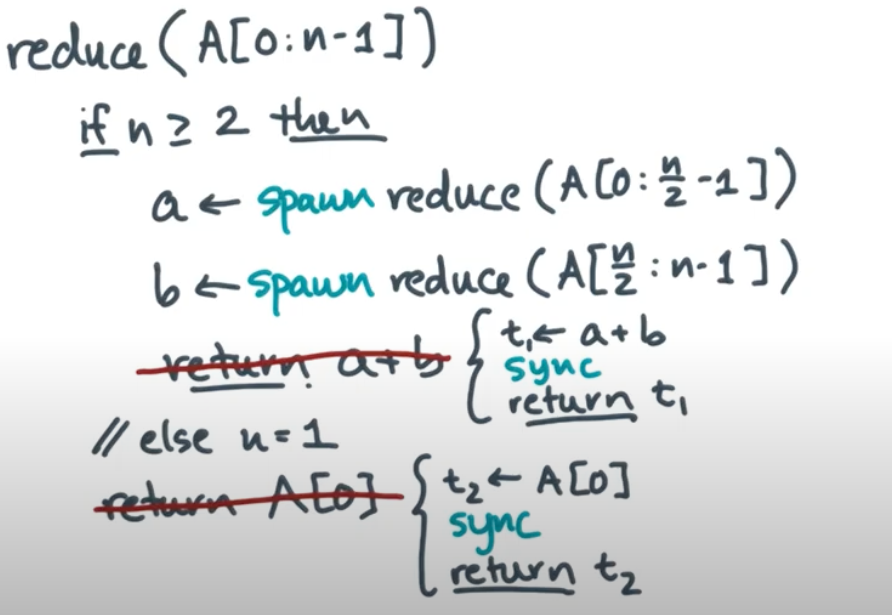 reduce(A[0:n-1])
if n ≥ 2 then
a ← spawn reduce(A[0:n/2-1])
b ← spawn reduce(A[n/2:n-1])
return a+b
t₁ ← a+b
sync
return t₁
// else n=1
return A[0]
t₂ ← A[0]
sync
return t₂